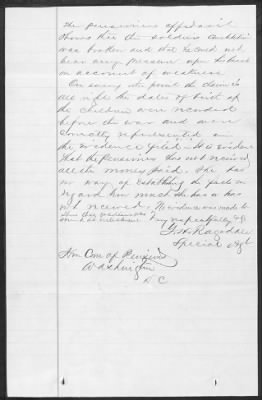 The pensioners affidavit
shows that the soldiers
was broken and that he could not
bear any pressure upon his
on account of weakness
On every other point the claim is
all right the dates of birth of
the children were recorded
before the war and were
correctly represented in
the evidence filed - It is evident
that the Pensioner has not received
all the money paid. She has
no way of establishing the facts in
regard how much she has or has
not received. No evidence was made to
Very respectfully
G. H. Ragsdale
Special Agt
Hon Com of Pensions
Washington
D C